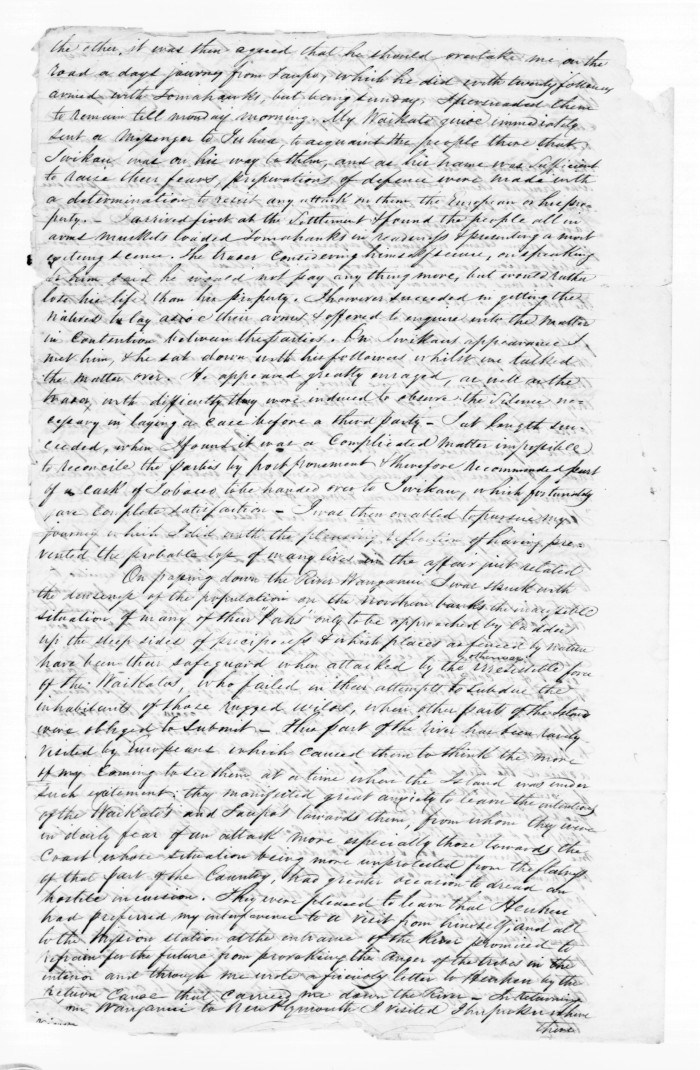 the other, it was then agreed that he should overtake me on the
road a days journey from Taupo, which he did with twenty followers
armed with Tomahawks, but being sunday, I persuaded them
to remain till monday morning. My Waikato guide immediately
sent a Messenger to Tuhua to acquaint the people there that
Iwikau was on his way to them, and as his name was sufficient
to raise their fears, preparations of defence were made with
a determination to resist any attack on them, the European or his pro-
perty. – I arrived first at the Settlement & found the people all in
arms muskets loaded Tomahawks in readiness & presenting a most
exciting scene. The trader considering himself secure, on speaking
to him said he would not pay any thing more, but would rather
lose his life than his property. I however succeeded in getting the
natives to lay aside their arms & offered to enquire into the matter
in Contention between the parties. On Iwikaus appearance I
met him, & he sat down with his followers whilst we talked
the matter over. He appeared greatly enraged, as well as the
trader, with difficulty they were induced to observe the silence ne-
cessary in laying a case before a third party – I at length suc-
ceeded, when I found it was a Complicated matter impossible
to reconcile the parties by postponement I therefore recommended part
of a cask of Tobacco to be handed over to Iwikau, which fortunately
gave complete satisfaction – I was then enabled to pursue my
journey which I did with the pleasing reflection of having pre-
vented the probable loss of many lives in the affair just related
On passing down the River Wanganui I was struck with
the denseness of the population on the northern banks the inaccessible
situation of many of their "Pahs" only to be approached by Ladders
up the steep sides of precipices & which places as fenced by nature
have been their safeguard when attacked by the otherwise irresistible force
of the Waikatos, who failed in their attempts to subdue the
inhabitants of those rugged wilds, when other parts of the Island
were obliged to submit – This part of the river has been rarely
visited by Europeans which caused them to think the more
of my coming to see them, at a time when the Island was under
such excitement; they manifested great anxiety to learn the intentions
of the Waikato's and Taupo's towards them, from whom they were
in daily fear of an attack more especially those towards the
Coast whose situation being more unprotected from the flatness
of that part of the Country, had greater occasion to dread an
hostile incursion. They were pleased to learn that Heuheu
had preferred my interference to a visit from himself, and all
to the Mission station at the entrance of the River promised to
refrain for the future from provoking the anger of the tribes in the
interior and through me wrote a friendly letter to Heuheu by the
return Canoe that carried me down the River – In returning
Wanganui to New Plymouth I visited where
there